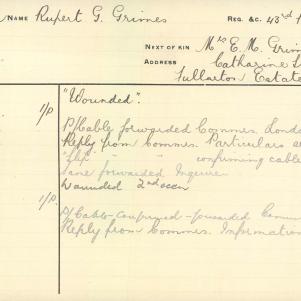 NAME Rupert G. Grimes REG. &C. 43rd
NEXT OF KIN Mrs E. M. Grim
ADDRESS Catharine S
Fullarton Estate
1/P "Wounded".
P/Cable forwarded Commes. Londo
Reply from Commes. Particulars a
confirming cable
forwarded. Inquire
Wounded 2nd occn
1/P P/Cable confirmed forwarded Comm
Reply from Commes. Information